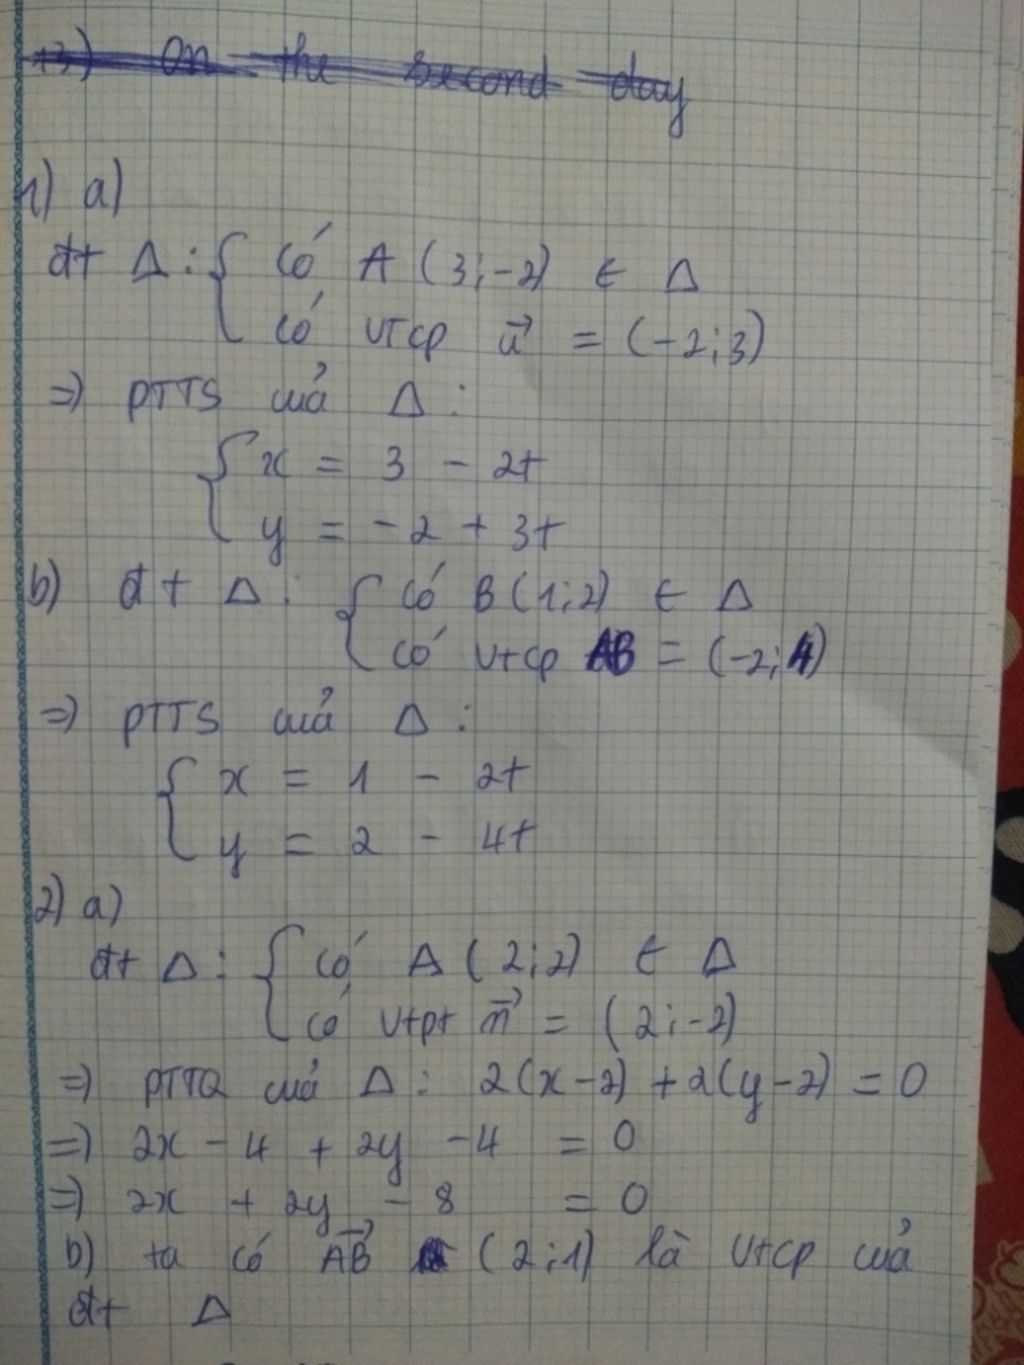 13) On the second day
1) a)
đt Δ: { có A (3;-2) ∈ Δ
có vtcp u⃗ = (-2;3)
=) PTTS của Δ:
{ x = 3 - 2t
y = -2 + 3t
b) đt Δ: { có B(1;2) ∈ Δ
có vtcp AB = (-2;4)
=) PTTS của Δ:
{ x = 1 - 2t
y = 2 - 4t
2) a)
đt Δ: { có A (2;2) ∈ Δ
có vtpt n⃗ = (2;-2)
=) PTTQ của Δ: 2(x-2) + 2(y-2) = 0
=) 2x - 4 + 2y - 4 = 0
=) 2x + 2y - 8 = 0
b) ta có A⃗B⃗ (2;1) là vtcp của
đt Δ